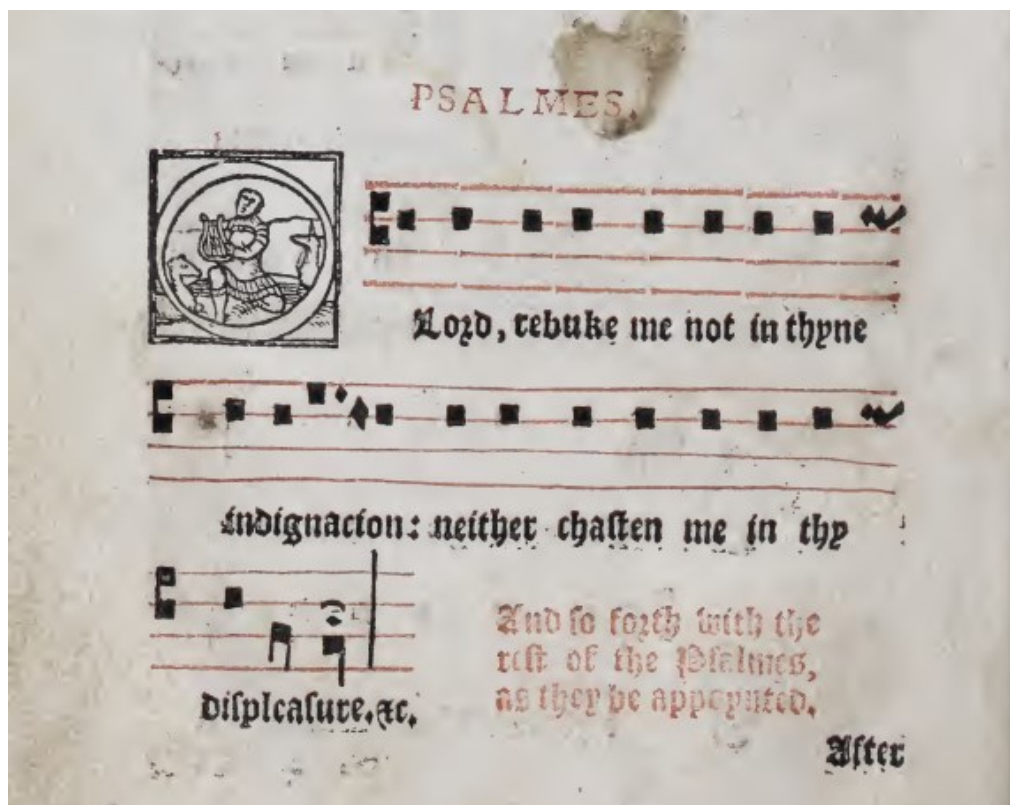 PSALMES.
O Lord, rebuke me not in thyne
indignacion: neither chasten me in thy
displeasure.&c.
And so forth with the
rest of the Psalmes,
as they be appoynted.
After